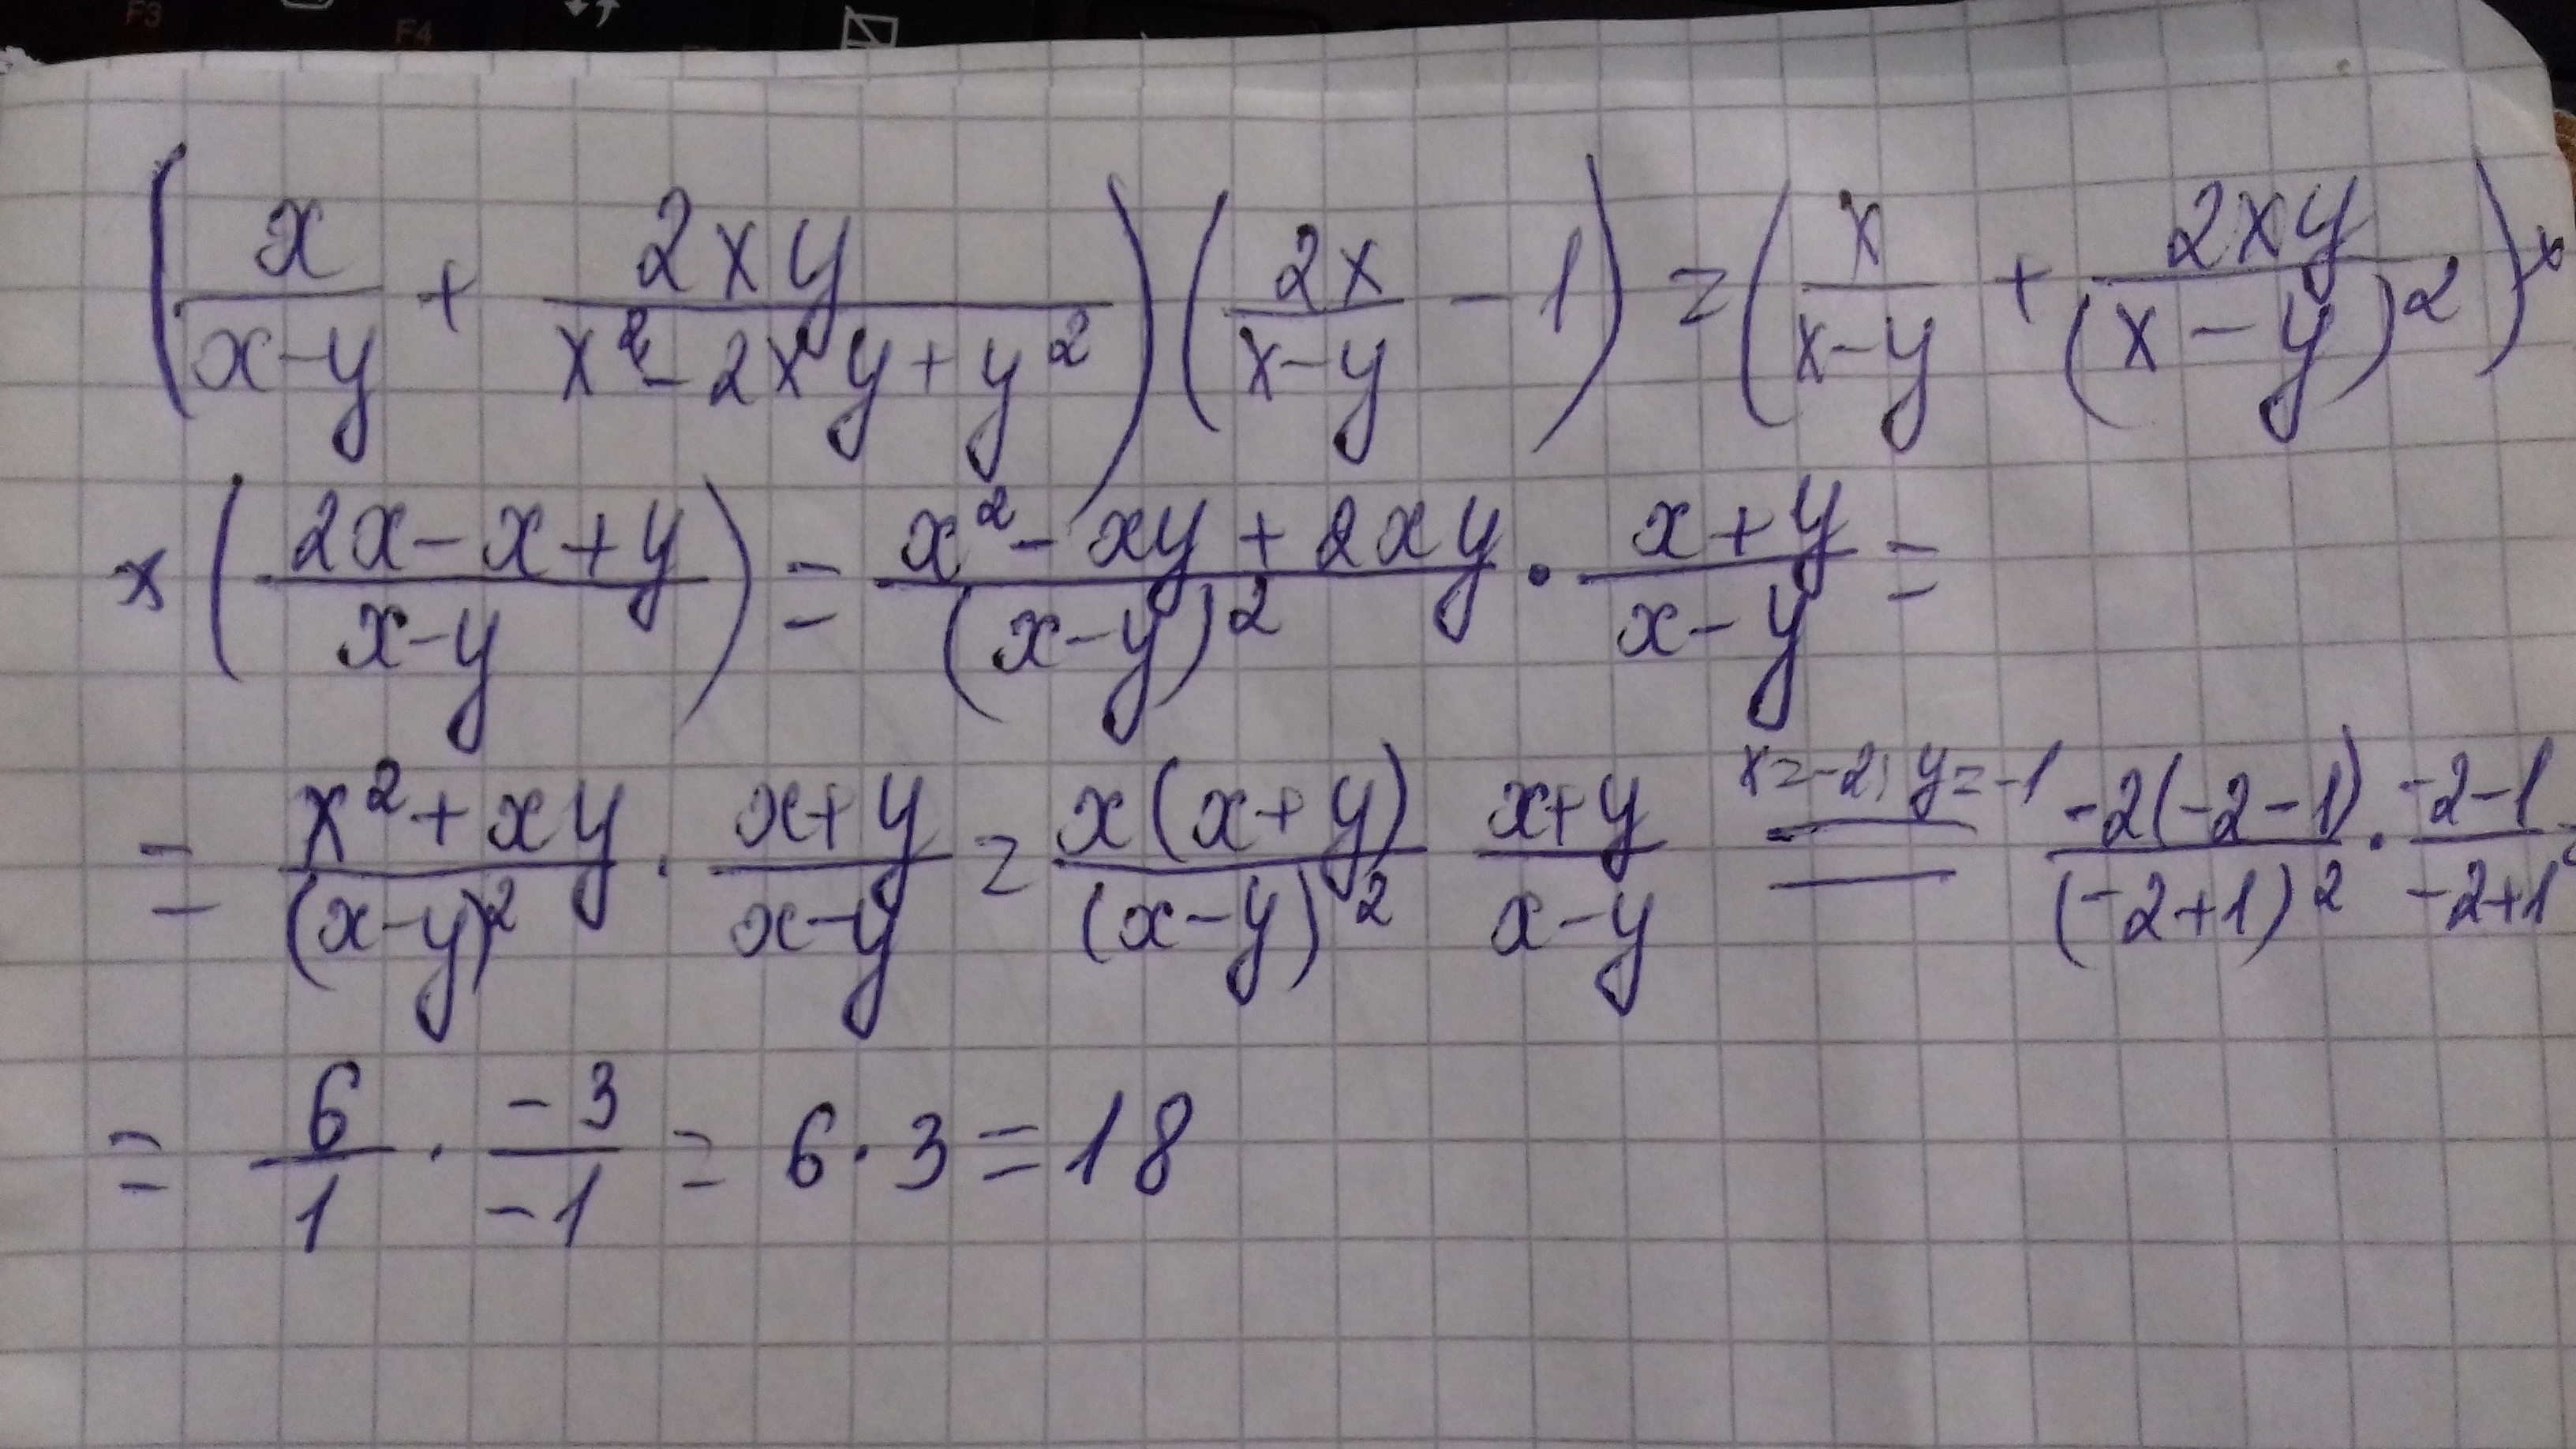 F3
F4
(x/(x-y) + 2xy/(x²-2xy+y²))(2x/(x-y) - 1) = (x/(x-y) + 2xy/(x-y)²)×
×((2x-x+y)/(x-y)) = (x²-xy+2xy)/(x-y)² · (x+y)/(x-y) =
= (x²+xy)/(x-y)² · (x+y)/(x-y) = x(x+y)/(x-y)² (x+y)/(x-y) =(x=-2; y=-1)= -2(-2-1)/(-2+1)² · (-2-1)/(-2+1) =
= 6/1 · -3/-1 = 6·3 = 18